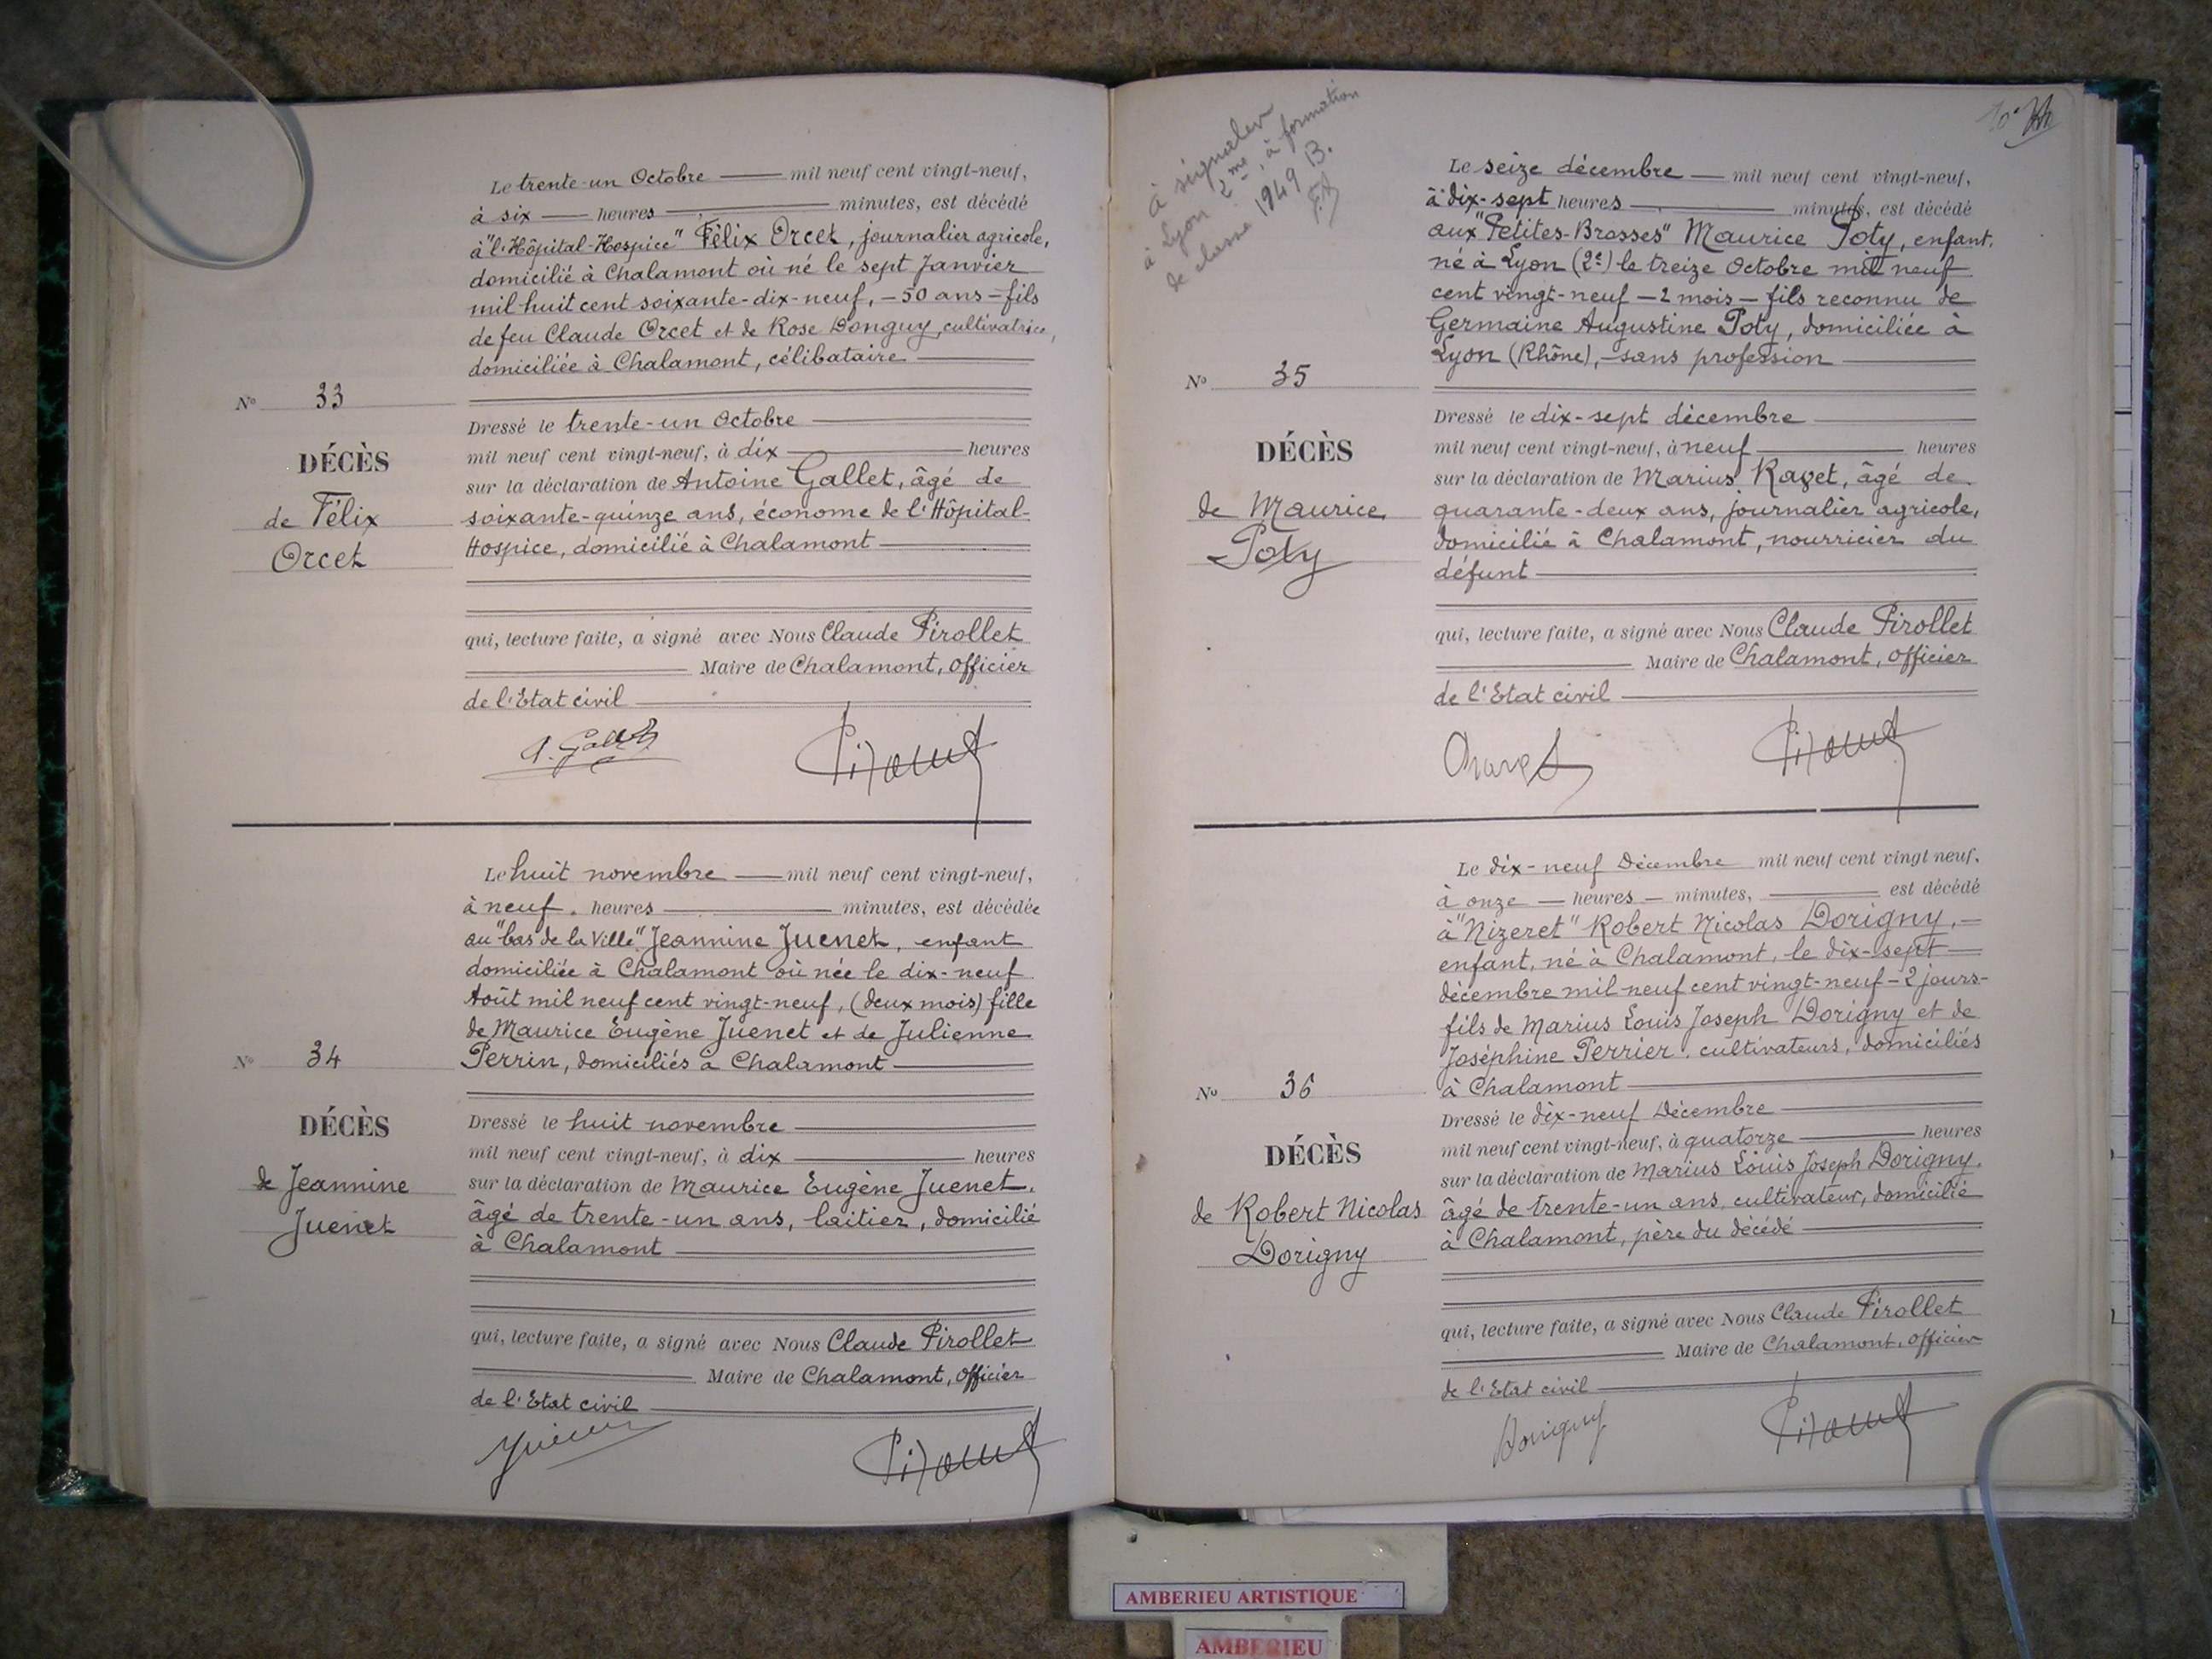 Le trente-un Octobre mil neuf cent vingt-neuf,
à six heures minutes, est décédé
à "l'Hôpital-Hospice" Félix Orcet, journalier agricole,
domicilié à Chalamont où né le sept Janvier
mil huit cent soixante-dix-neuf, - 50 ans - fils
de feu Claude Orcet et de Rose Donguy, cultivatrice,
domiciliée à Chalamont, célibataire
N° 33
DÉCÈS
de Félix
Orcet
Dressé le trente-un Octobre
mil neuf cent vingt-neuf, à dix heures
sur la déclaration de Antoine Gallet, âgé de
soixante-quinze ans, économe de l'Hôpital-
Hospice, domicilié à Chalamont
qui, lecture faite, a signé avec Nous Claude Pirollet
Maire de Chalamont, Officier
de l'Etat civil
A. Gallet
Pirollet
Le huit novembre mil neuf cent vingt-neuf,
à neuf. heures minutes, est décédée
au "bas de la Ville" Jeannine Juenet, enfant
domiciliée à Chalamont où née le dix-neuf
Août mil neuf cent vingt-neuf, (deux mois) fille
de Maurice Eugène Juenet et de Julienne
Perrin, domiciliés à Chalamont
N° 34
DÉCÈS
de Jeannine
Juenet
Dressé le huit novembre
mil neuf cent vingt-neuf, à dix heures
sur la déclaration de Maurice Eugène Juenet,
âgé de trente-un ans, laitier, domicilié
à Chalamont
qui, lecture faite, a signé avec Nous Claude Pirollet
Maire de Chalamont, Officier
de l'Etat civil
Juenet
Pirollet
à signaler
à Lyon 2me, à formation
de classe 1949 B.
Le seize décembre mil neuf cent vingt-neuf,
à dix-sept heures minutes, est décédé
aux "Petites-Brosses" Maurice Poty, enfant,
né à Lyon (2e) le treize Octobre mil neuf
cent vingt-neuf - 2 mois - fils reconnu de
Germaine Augustine Poty, domiciliée à
Lyon (Rhône), - sans profession
N° 35
DÉCÈS
de Maurice
Poty
Dressé le dix-sept décembre
mil neuf cent vingt-neuf, à neuf heures
sur la déclaration de Marius Ravet, âgé de
quarante-deux ans, journalier agricole,
domicilié à Chalamont, nourricier du
défunt
qui, lecture faite, a signé avec Nous Claude Pirollet
Maire de Chalamont, Officier
de l'Etat civil
Pirollet
Le dix-neuf Décembre mil neuf cent vingt neuf,
à onze heures minutes, est décédé
à "Nizeret" Robert Nicolas Dorigny, -
enfant, né à Chalamont, le dix-sept
décembre mil neuf cent vingt-neuf - 2 jours -
fils de Marius Louis Joseph Dorigny et de
Joséphine Perrier, cultivateurs, domiciliés
à Chalamont
N° 36
DÉCÈS
de Robert Nicolas
Dorigny
Dressé le dix-neuf Décembre
mil neuf cent vingt-neuf, à quatorze heures
sur la déclaration de Marius Louis Joseph Dorigny,
âgé de trente-un ans, cultivateur, domicilié
à Chalamont, père du décédé
qui, lecture faite, a signé avec Nous Claude Pirollet
Maire de Chalamont, Officier
de l'Etat civil
Dorigny
Pirollet
AMBERIEU ARTISTIQUE
AMBERIEU